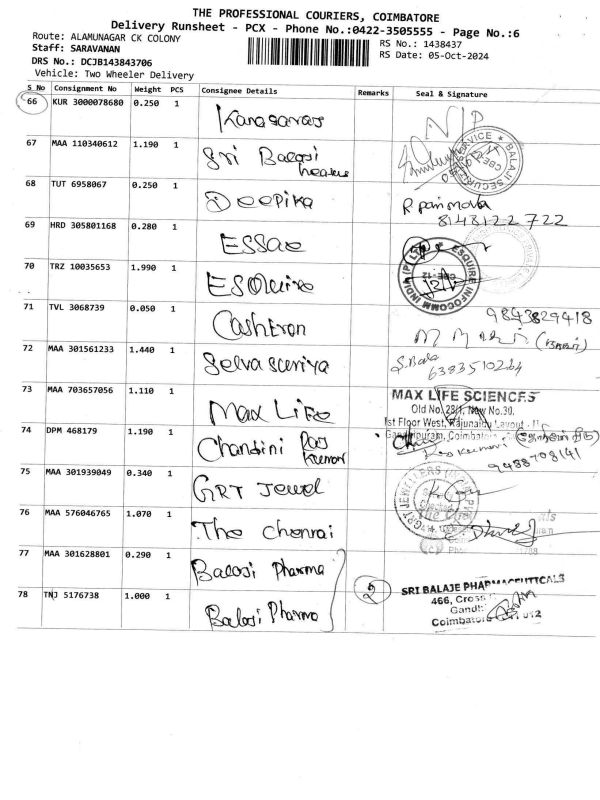 THE PROFESSIONAL COURIERS, COIMBATORE
Delivery Runsheet - PCX - Phone No.:0422-3505555 - Page No.:6
Route: ALAMUNAGAR CK COLONY
RS No.: 1438437
Staff: SARAVANAN
RS Date: 05-Oct-2024
DRS No.: DCJB143843706
Vehicle: Two Wheeler Delivery
S No Consignment No Weight PCS Consignee Details Remarks Seal & Signature
66 KUR 3000078680 0.250 1
67 MAA 110340612 1.190 1 Sri Balaji
68 TUT 6958067 0.250 1 Deepika
8148122722
69 HRD 305801168 0.280 1 ESSae
70 TRZ 10035653 1.990 1 ESquire
ESQUIRE INFOCOMM INDIA (P) LTD
71 TVL 3068739 0.050 1 Cashtron
9843829418
72 MAA 301561233 1.440 1 Selvasuriya
S. Bala
6383510264
73 MAA 703657056 1.110 1 Max Life
MAX LIFE SCIENCES
Old No. 28/1, New No.30,
1st Floor West, Rajunaidu Layout
74 DPM 468179 1.190 1 Chandini Raj Kumar
9488708141
75 MAA 301939049 0.340 1 GRT Jewel
76 MAA 576046765 1.070 1 The Chennai
77 MAA 301628801 0.290 1 Balaji Pharma
2
78 TNJ 5176738 1.000 1 Balaji Pharma
SRI BALAJE PHARMACEUTICALS
466, Cross
Gandhi